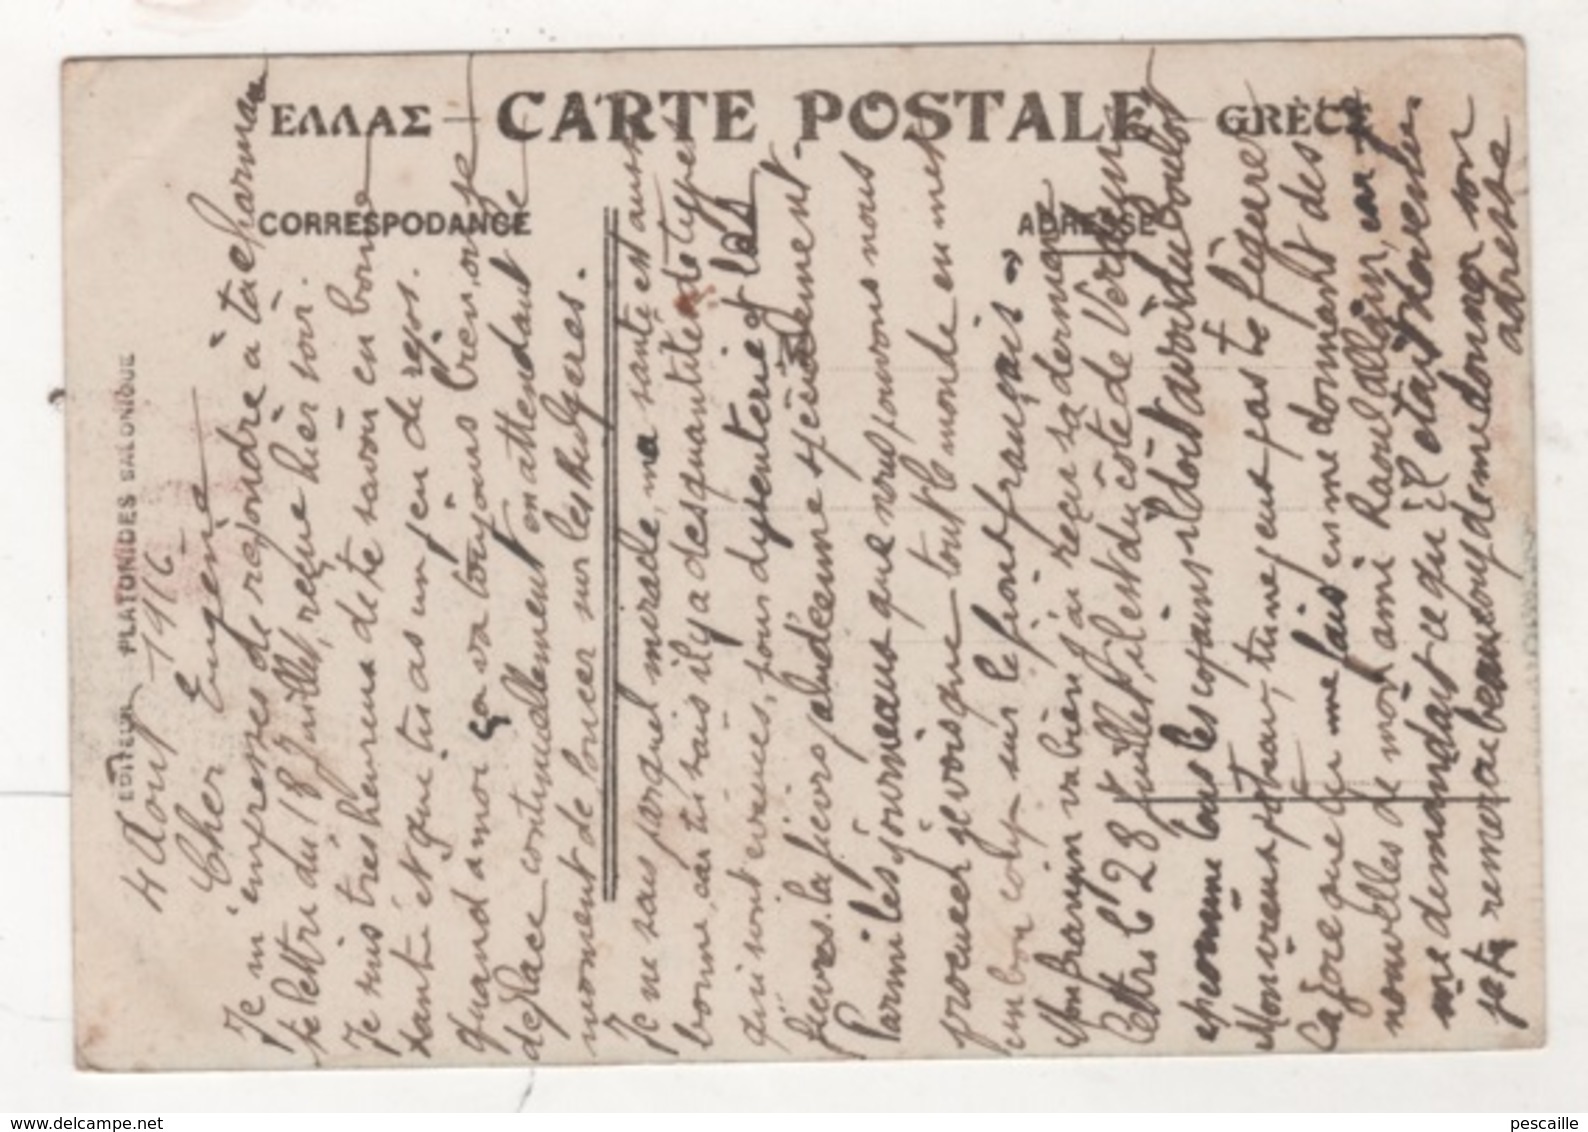 ΕΛΛΑΣ — CARTE POSTALE — GRÈCE
CORRESPODANCE
ADRESSE
EDITEUR PLATONIDES SALONIQUE
4 Aout 1916
Cher Eugène
Je m'empresse de repondre à ta charman
te lettre du 18 Juillet, reçue hier soir.
Je suis très heureux de te savoir en bonne
santé et que tu as un peu de repos.
quand a moi ça va toujours bien, on se
deplace continuellement en attendant le
moment de foncer sur les Bulgares.
Je ne sais par quel miracle, ma santé est aussi
bonne, car tu sais il y a des quantité de types
qui sont evacués, pour dysenterie et les
fievres. la fievre paludeenne specialement.
Parmi les journeaux que nous pouvons nous
procurer je vois que tout le monde en met
un bon coup sur le front français.
Mon frangin va bien j'ai reçu sa dernière
lettre le 28 Juillet, il est du côté de Verdun
comme tous les copains il doit avoir du boulot
Mon vieux poteau, tu ne peux pas te figurer
la joie que tu me fais en me donnant des
nouvelles de mon ami Raoul allain, car je
me demandais ce qu'il etait devenu
je te remercie beaucoup de me donner son
adresse
pescaille
www.delcampe.net